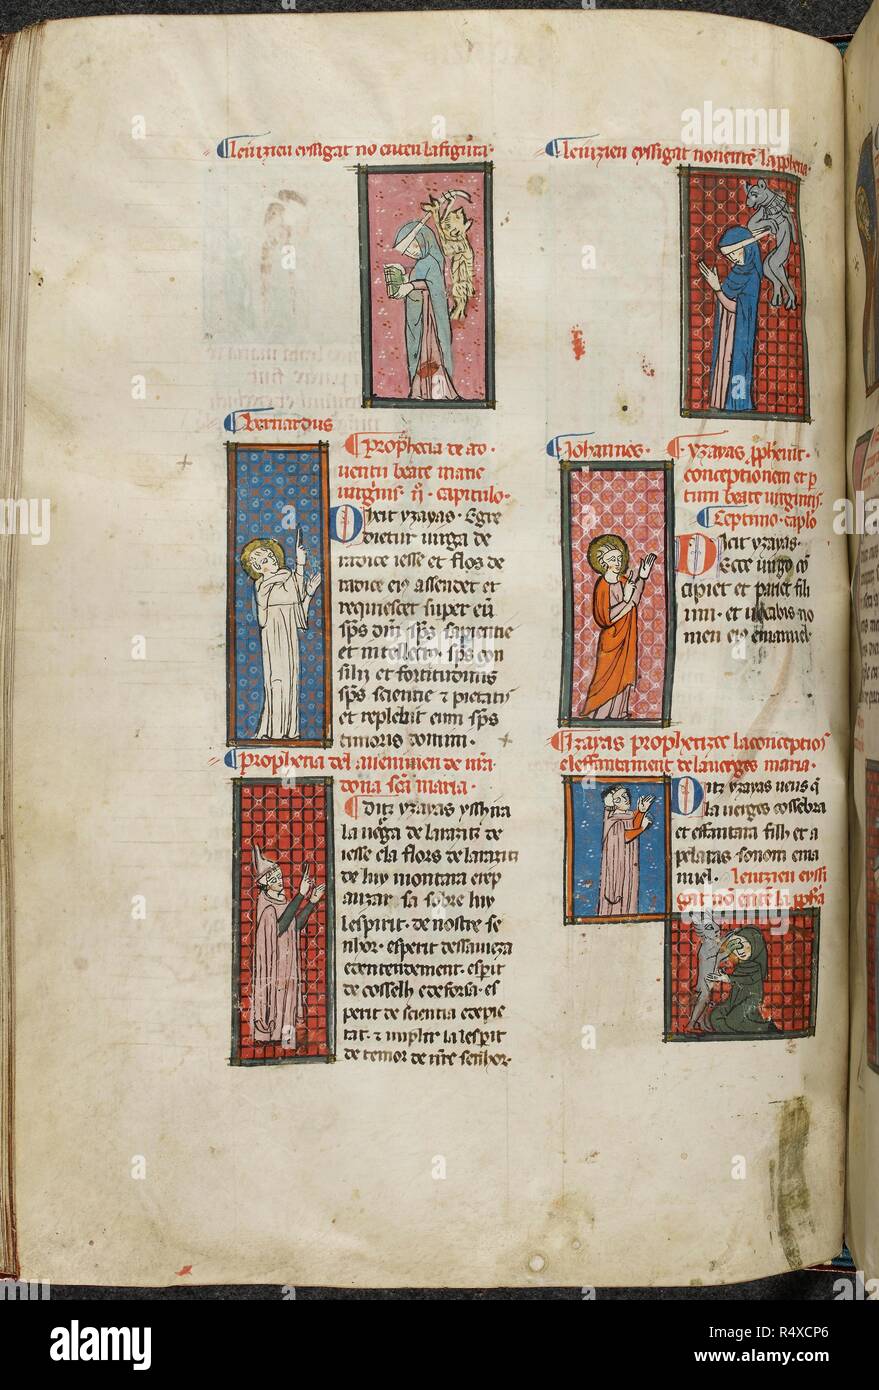 Leiuzieu eyssigat no enten la figura.
bernardus
Prophecia de ad
uentu beate marie
uirginis. ij. capitulo.
Dixit yzayas. Egre
dietur uirga de
radice iesse et flos de
radice ei9 ascendet et
requiescet super eū
sp̄s dn̄i. sp̄s sapientie
et intellectꝰ. sp̄s con
silij et fortitudinis
sp̄s scientie ⁊ pietatis
et replebit eum sp̄s
timoris domini.
Prophecia del aueniment de nr̄a
dona sc̄a maria.
Ditz yzayas yssira
la uerga de laraitz de
iesse ela flors de laraitz
de luy montara erep
auzar sa sobre luy
lesperit. de nostre se
nhor. esperit de sauieza
e dentendement. esperit
de cosselh e de forsa. es
perit de sciencia e de pie
tat. ⁊ umplir la lesperit
de temor de nr̄e senhor.
Leiuzieu eyssigat non enten la pphecia.
Johannes.
yzayas pphetiut.
conceptionem et p
tum beate uirginis.
Septimo. caplo
Dicit yzayas.
Ecce uirgo con
cipiet et pariet fili
um. et uocabis no
men ei9 emanuel.
yzayas prophetizec la conceptio
el effantament de la uerges maria.
Ditz yzayas ueus q̄
la uerges cossebra
et effantara filh et a
pelaras so nom ema
nuel. Leiuzieu eyssi
gat nō enten la pphā
alamy
Image ID: R4XCP6
www.alamy.com